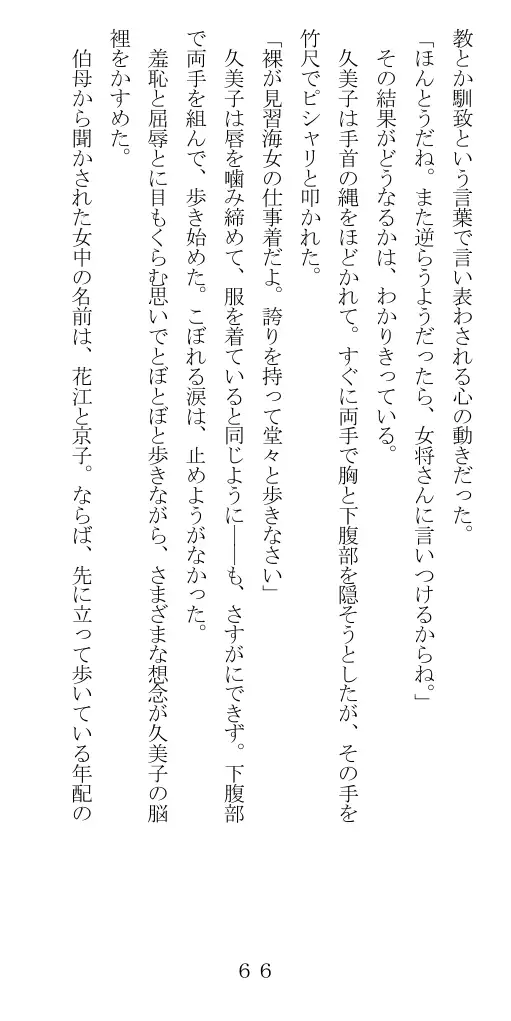 教とか馴致という言葉で言い表わされる心の動きだった。
「ほんとうだね。また逆らうようだったら、女将さんに言いつけるからね。」
その結果がどうなるかは、わかりきっている。
久美子は手首の縄をほどかれて。すぐに両手で胸と下腹部を隠そうとしたが、その手を
竹尺でピシャリと叩かれた。
「裸が見習海女の仕事着だよ。誇りを持って堂々と歩きなさい」
久美子は唇を噛み締めて、服を着ていると同じように――も、さすがにできず。下腹部
で両手を組んで、歩き始めた。こぼれる涙は、止めようがなかった。
羞恥と屈辱とに目もくらむ思いでとぼとぼと歩きながら、さまざまな想念が久美子の脳
裡をかすめた。
伯母から聞かされた女中の名前は、花江と京子。ならば、先に立って歩いている年配の
６６